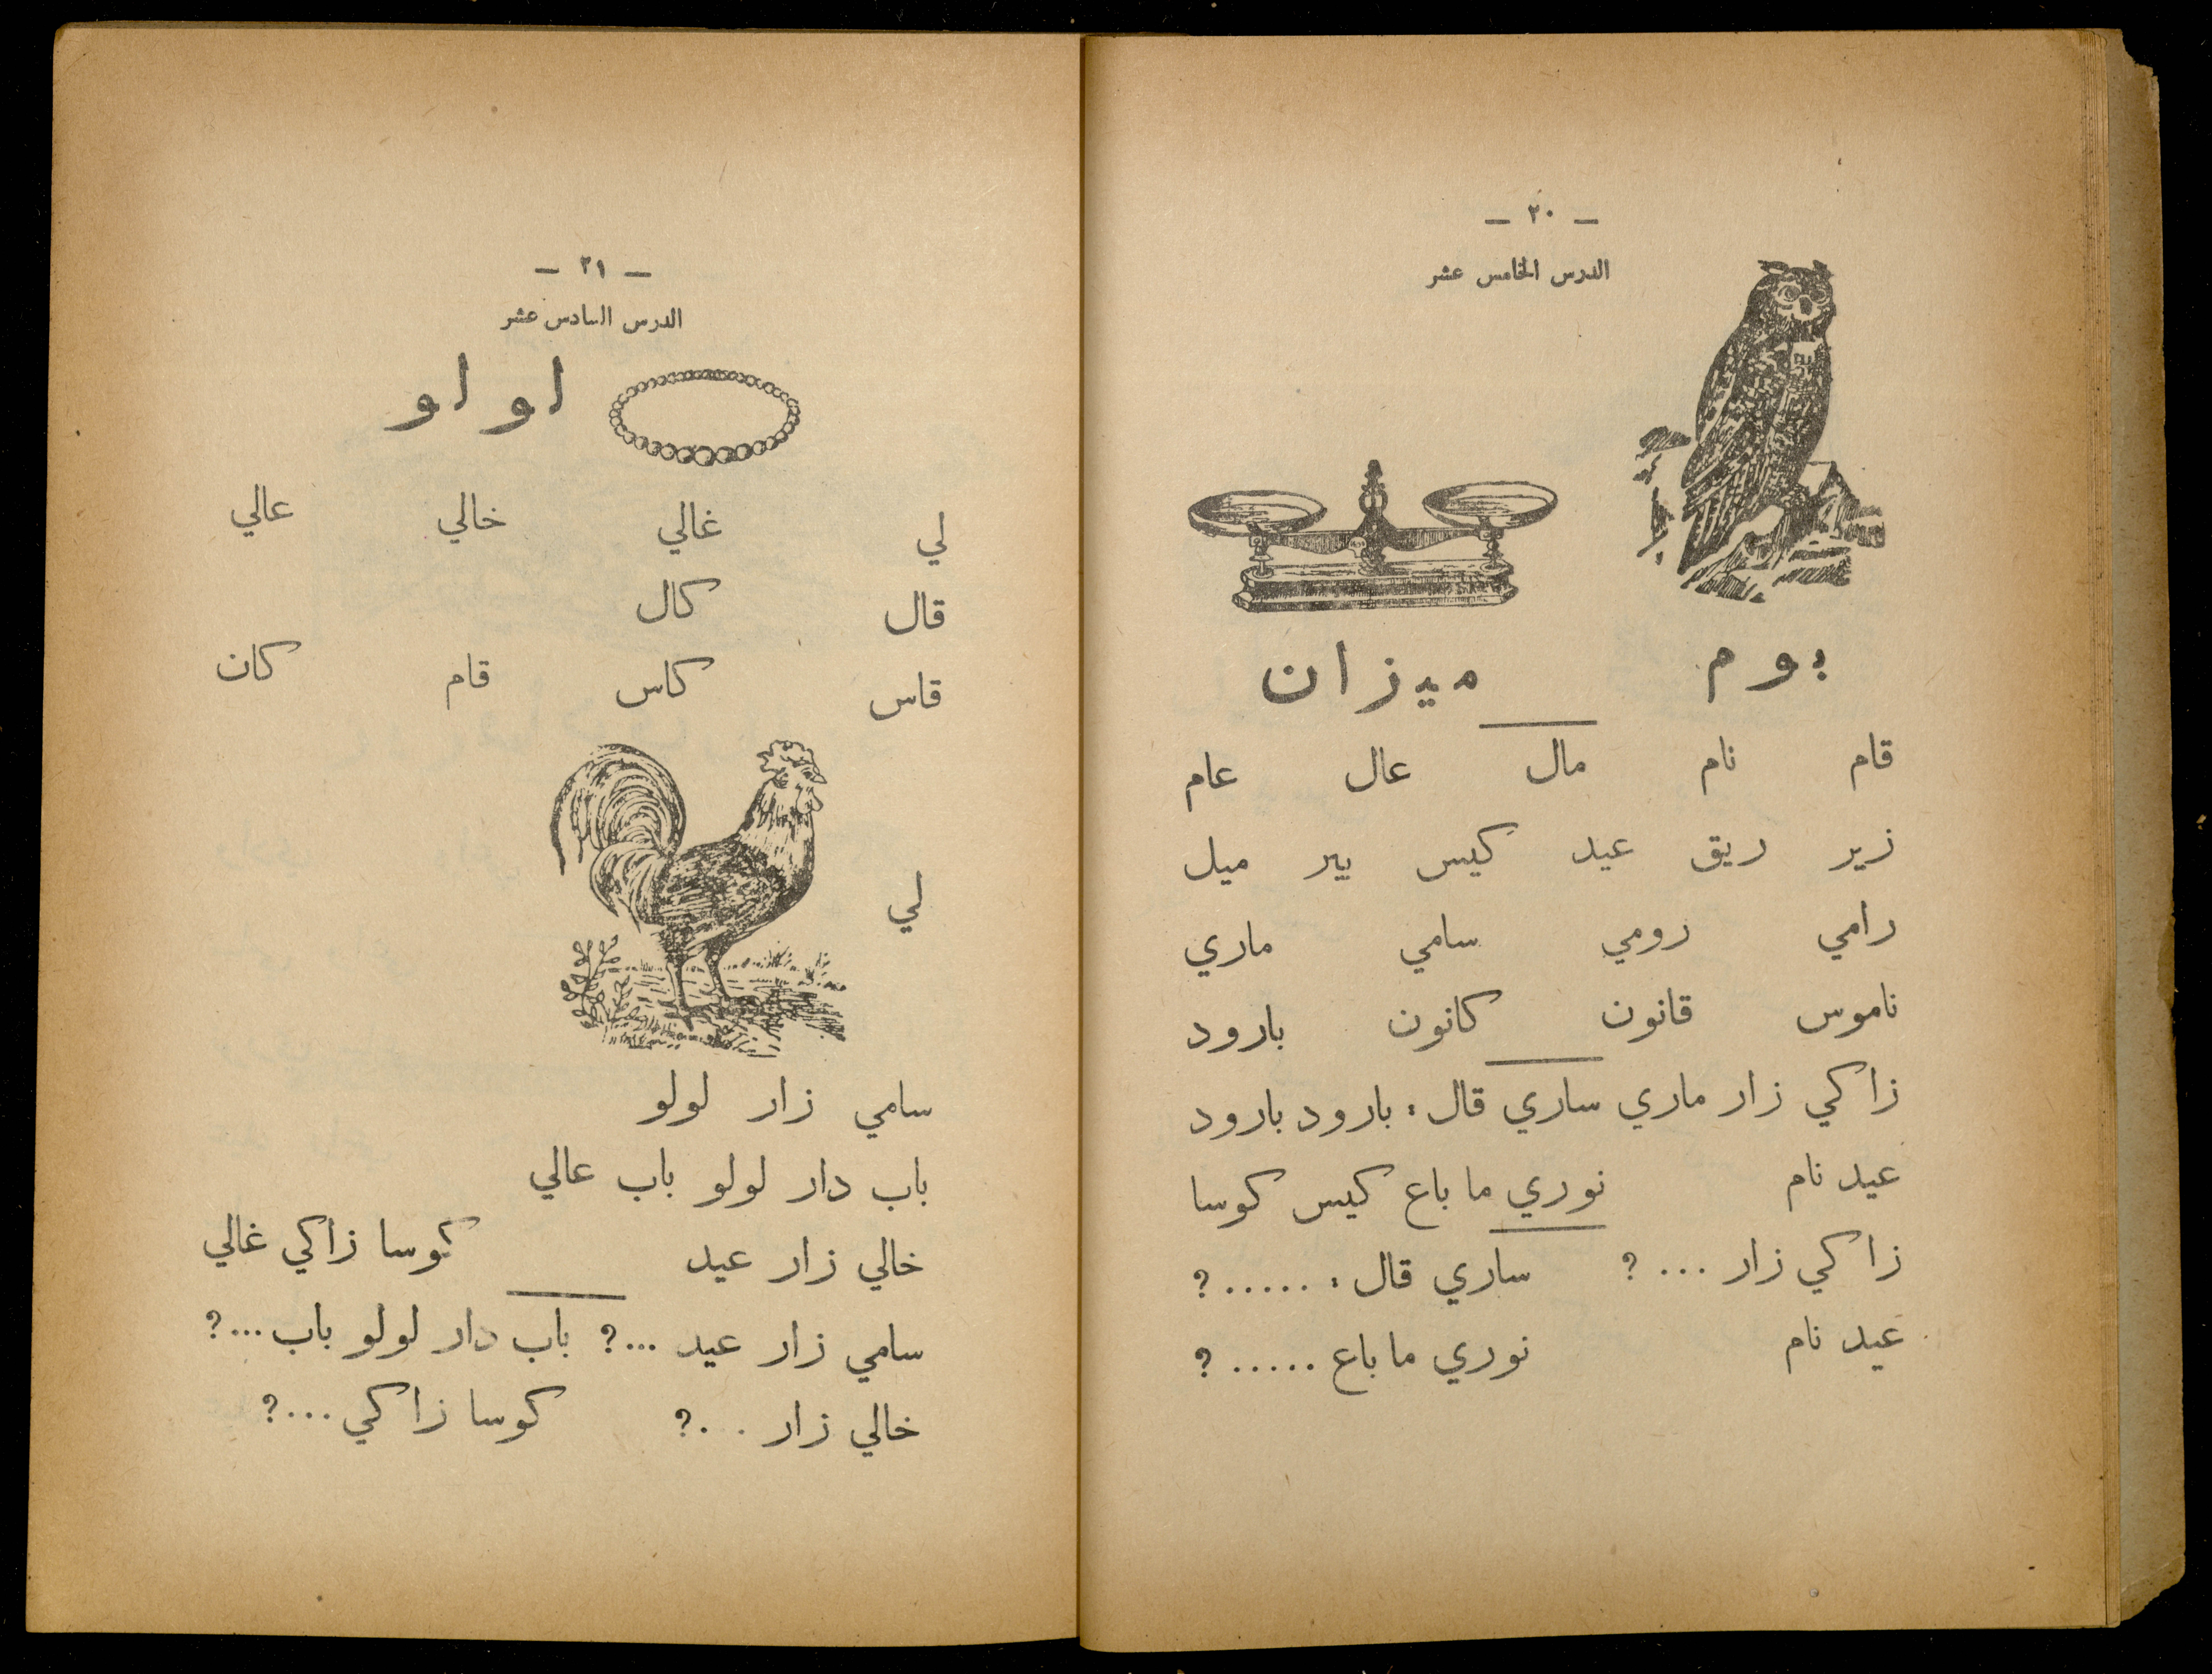 — ٢٠ —
الدرس الخامس عشر
بوم ميزان
قام نام مال عال عام
زير ريق عيد كيس بير ميل
رامي رومي سامي ماري
ناموس قانون كانون بارود
زاكي زار ماري ساري قال : بارود بارود
عيد نام نوري ما باع كيس كوسا
زاكي زار ... ? ساري قال : ..... ?
عيد نام نوري ما باع ..... ?
— ٢١ —
الدرس السادس عشر
لو لو
لي غالي خالي عالي
قال كال
قاس كاس قام كان
لي
سامي زار لولو
باب دار لولو باب عالي
خالي زار عيد كوسا زاكي غالي
سامي زار عيد ...? باب دار لولو باب ...?
خالي زار ...? كوسا زاكي ...?